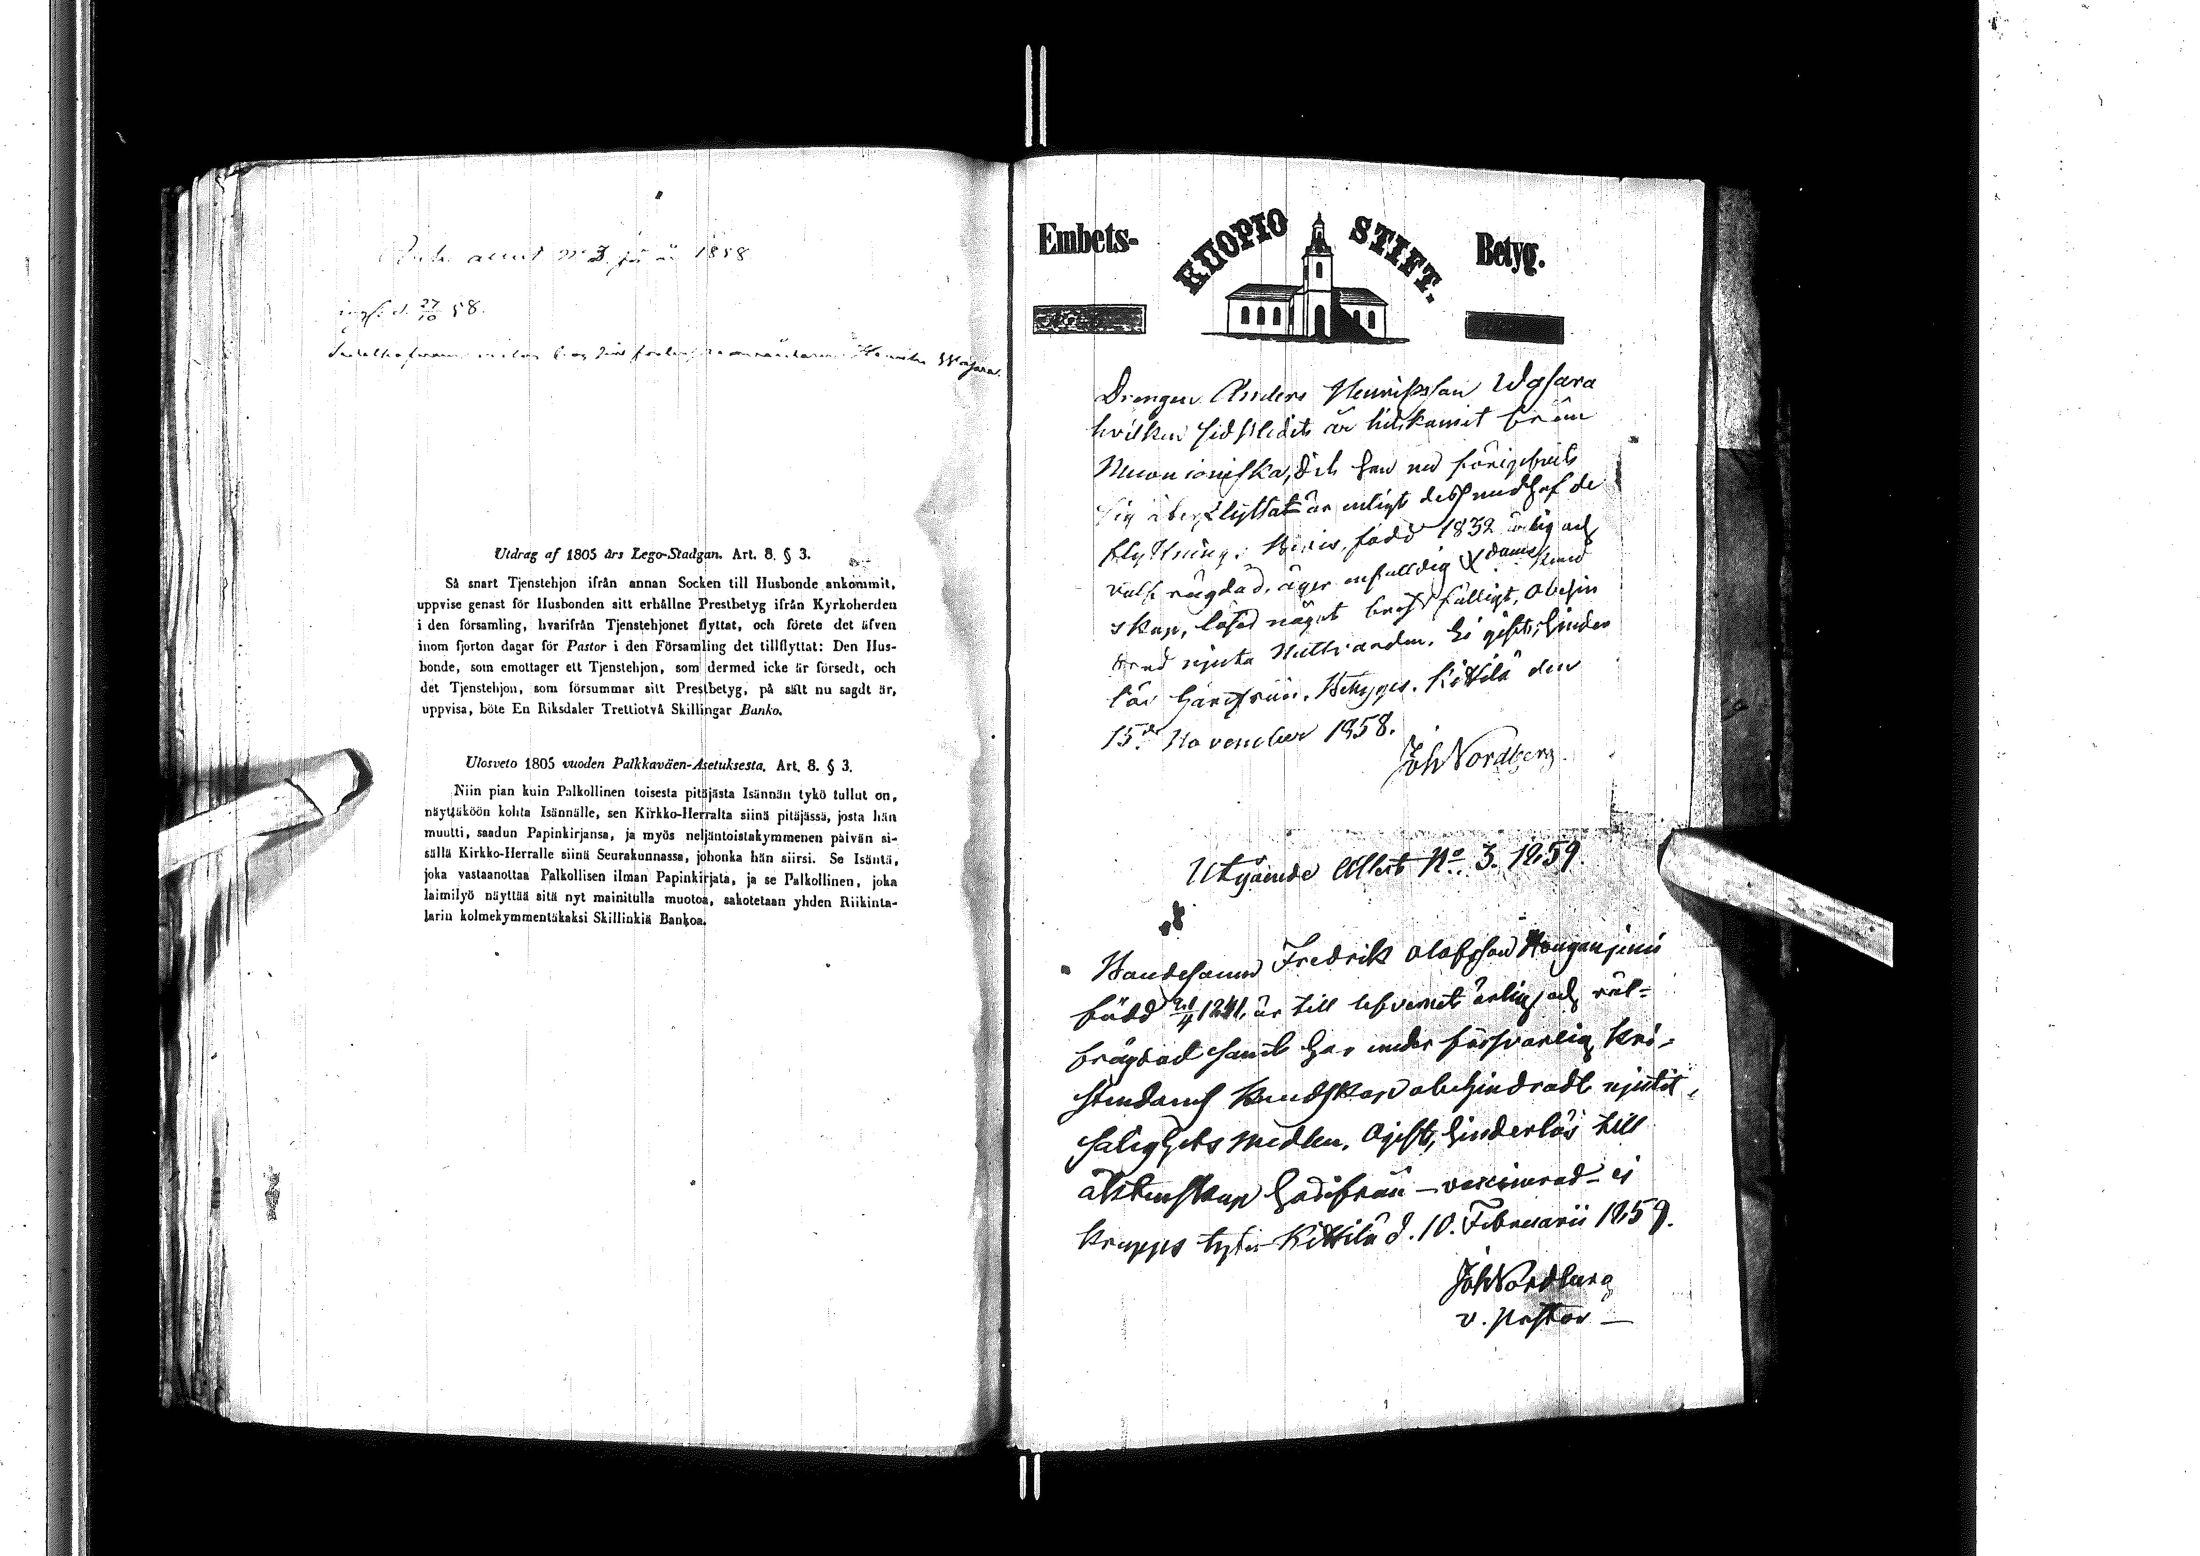 1858
d. 27/10 58.
Wasara.
Utdrag af 1805 års Lego-Stadgan. Art. 8. § 3.
Så snart Tjenstehjon ifrån annan Socken till Husbonde ankommit,
uppvise genast för Husbonden sitt erhållne Prestbetyg ifrån Kyrkoherden
i den församling, hvarifrån Tjenstehjonet flyttat, och förete det äfven
inom fjorton dagar för Pastor i den Församling det tillflyttat: Den Hus-
bonde, som emottager ett Tjenstehjon, som dermed icke är försedt, och
det Tjenstehjon, som försummar sitt Prestbetyg, på sält nu sagdt är,
uppvisa, böte En Riksdaler Trettiotvå Skillingar Banko.
Ulosveto 1805 vuoden Palkkaväen-Asetuksesta. Art. 8. § 3.
Niin pian kuin Palkollinen toisesta pitäjästa Isännän tykö tullut on,
näyttäköön kohta Isännälle, sen Kirkko-Herralta siinä pitäjässä, josta hän
muutti, saadun Papinkirjansa, ja myös neljäntoistakymmenen päivän si-
sällä Kirkko-Herralle siinä Seurakunnassa, johonka hän siirsi. Se Isäntä,
joka vastaanottaa Palkollisen ilman Papinkirjata, ja se Palkollinen, joka
laimilyö näyttää sitä nyt mainitulla muotoa, sakotetaan yhden Riikinta-
larin kolmekymmentäkaksi Skillinkiä Bankoa.
Embets- KUOPIO STIFT. Betyg.
Drengen Anders Henriksson Wasara
hvilken sidstledit år hitkommit från
Muonioniska, dit han
sig öfverflyttat är enligt
flyttnings född 1832 ärlig och
väl frägdad, äger enfalldig kund
skap, läser något bristfälligt, obehin
drad njuta Nattvarden. Ej gift; hinder
lös härifrån. Betygas. Kittilä den
15de November 1858.
Joh Nordberg
Utgående Attest No. 3. 1859.
Fredrik Olofsson
född 21/4 1841, är till lefvernet ärlig och väl-
frägdad samt har under försvarlig kri-
stendoms kundskap obehindradt njutit
salighets medlen. Ogift, hinderlös till
äktenskap härifrån - vaccinerad - ej
Kittilä d. 10. Februarii 1859.
Joh Nordberg
v. pastor